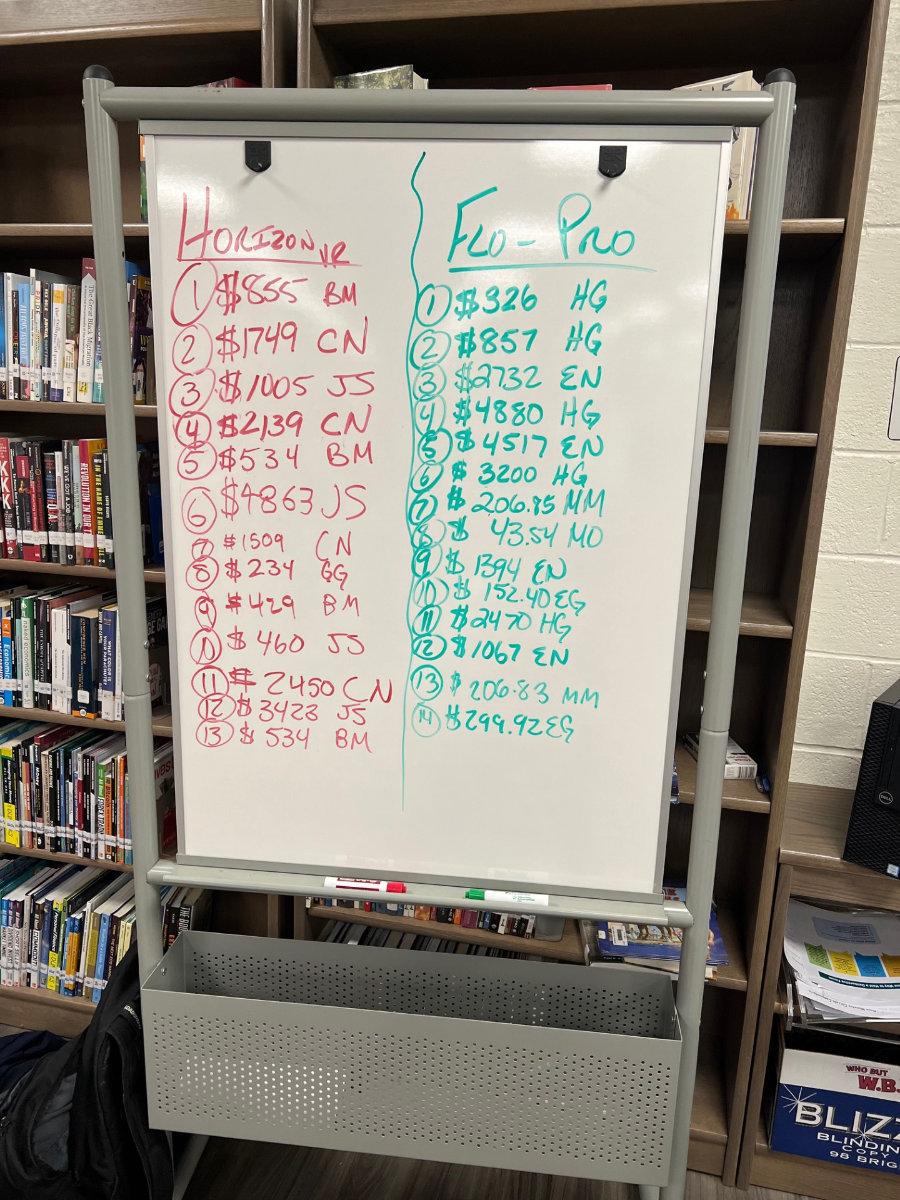 HORIZON VR
① $855 BM
② $1749 CN
③ $1005 JS
④ $2139 CN
⑤ $534 BM
⑥ $4863 JS
⑦ $1509 CN
⑧ $234 GG
⑨ $429 BM
⑩ $460 JS
⑪ $2450 CN
⑫ $3423 JS
⑬ $534 BM
FLO-PRO
① $326 HG
② $857 HG
③ $2732 EN
④ $4880 HG
⑤ $4517 EN
⑥ $3200 HG
⑦ $206.85 MM
⑧ $43.54 MO
⑨ $1394 EN
⑩ $152.40 EG
⑪ $2470 HG
⑫ $1067 EN
⑬ $206.83 MM
⑭ $299.92 EG
The Great Black Migration
REVOLUTION IN OUR
IN THE NAME OF
Economic
DELL
WHO BUT
W.B.
BLIZZ
BLINDIN
COPY
98 BRIG